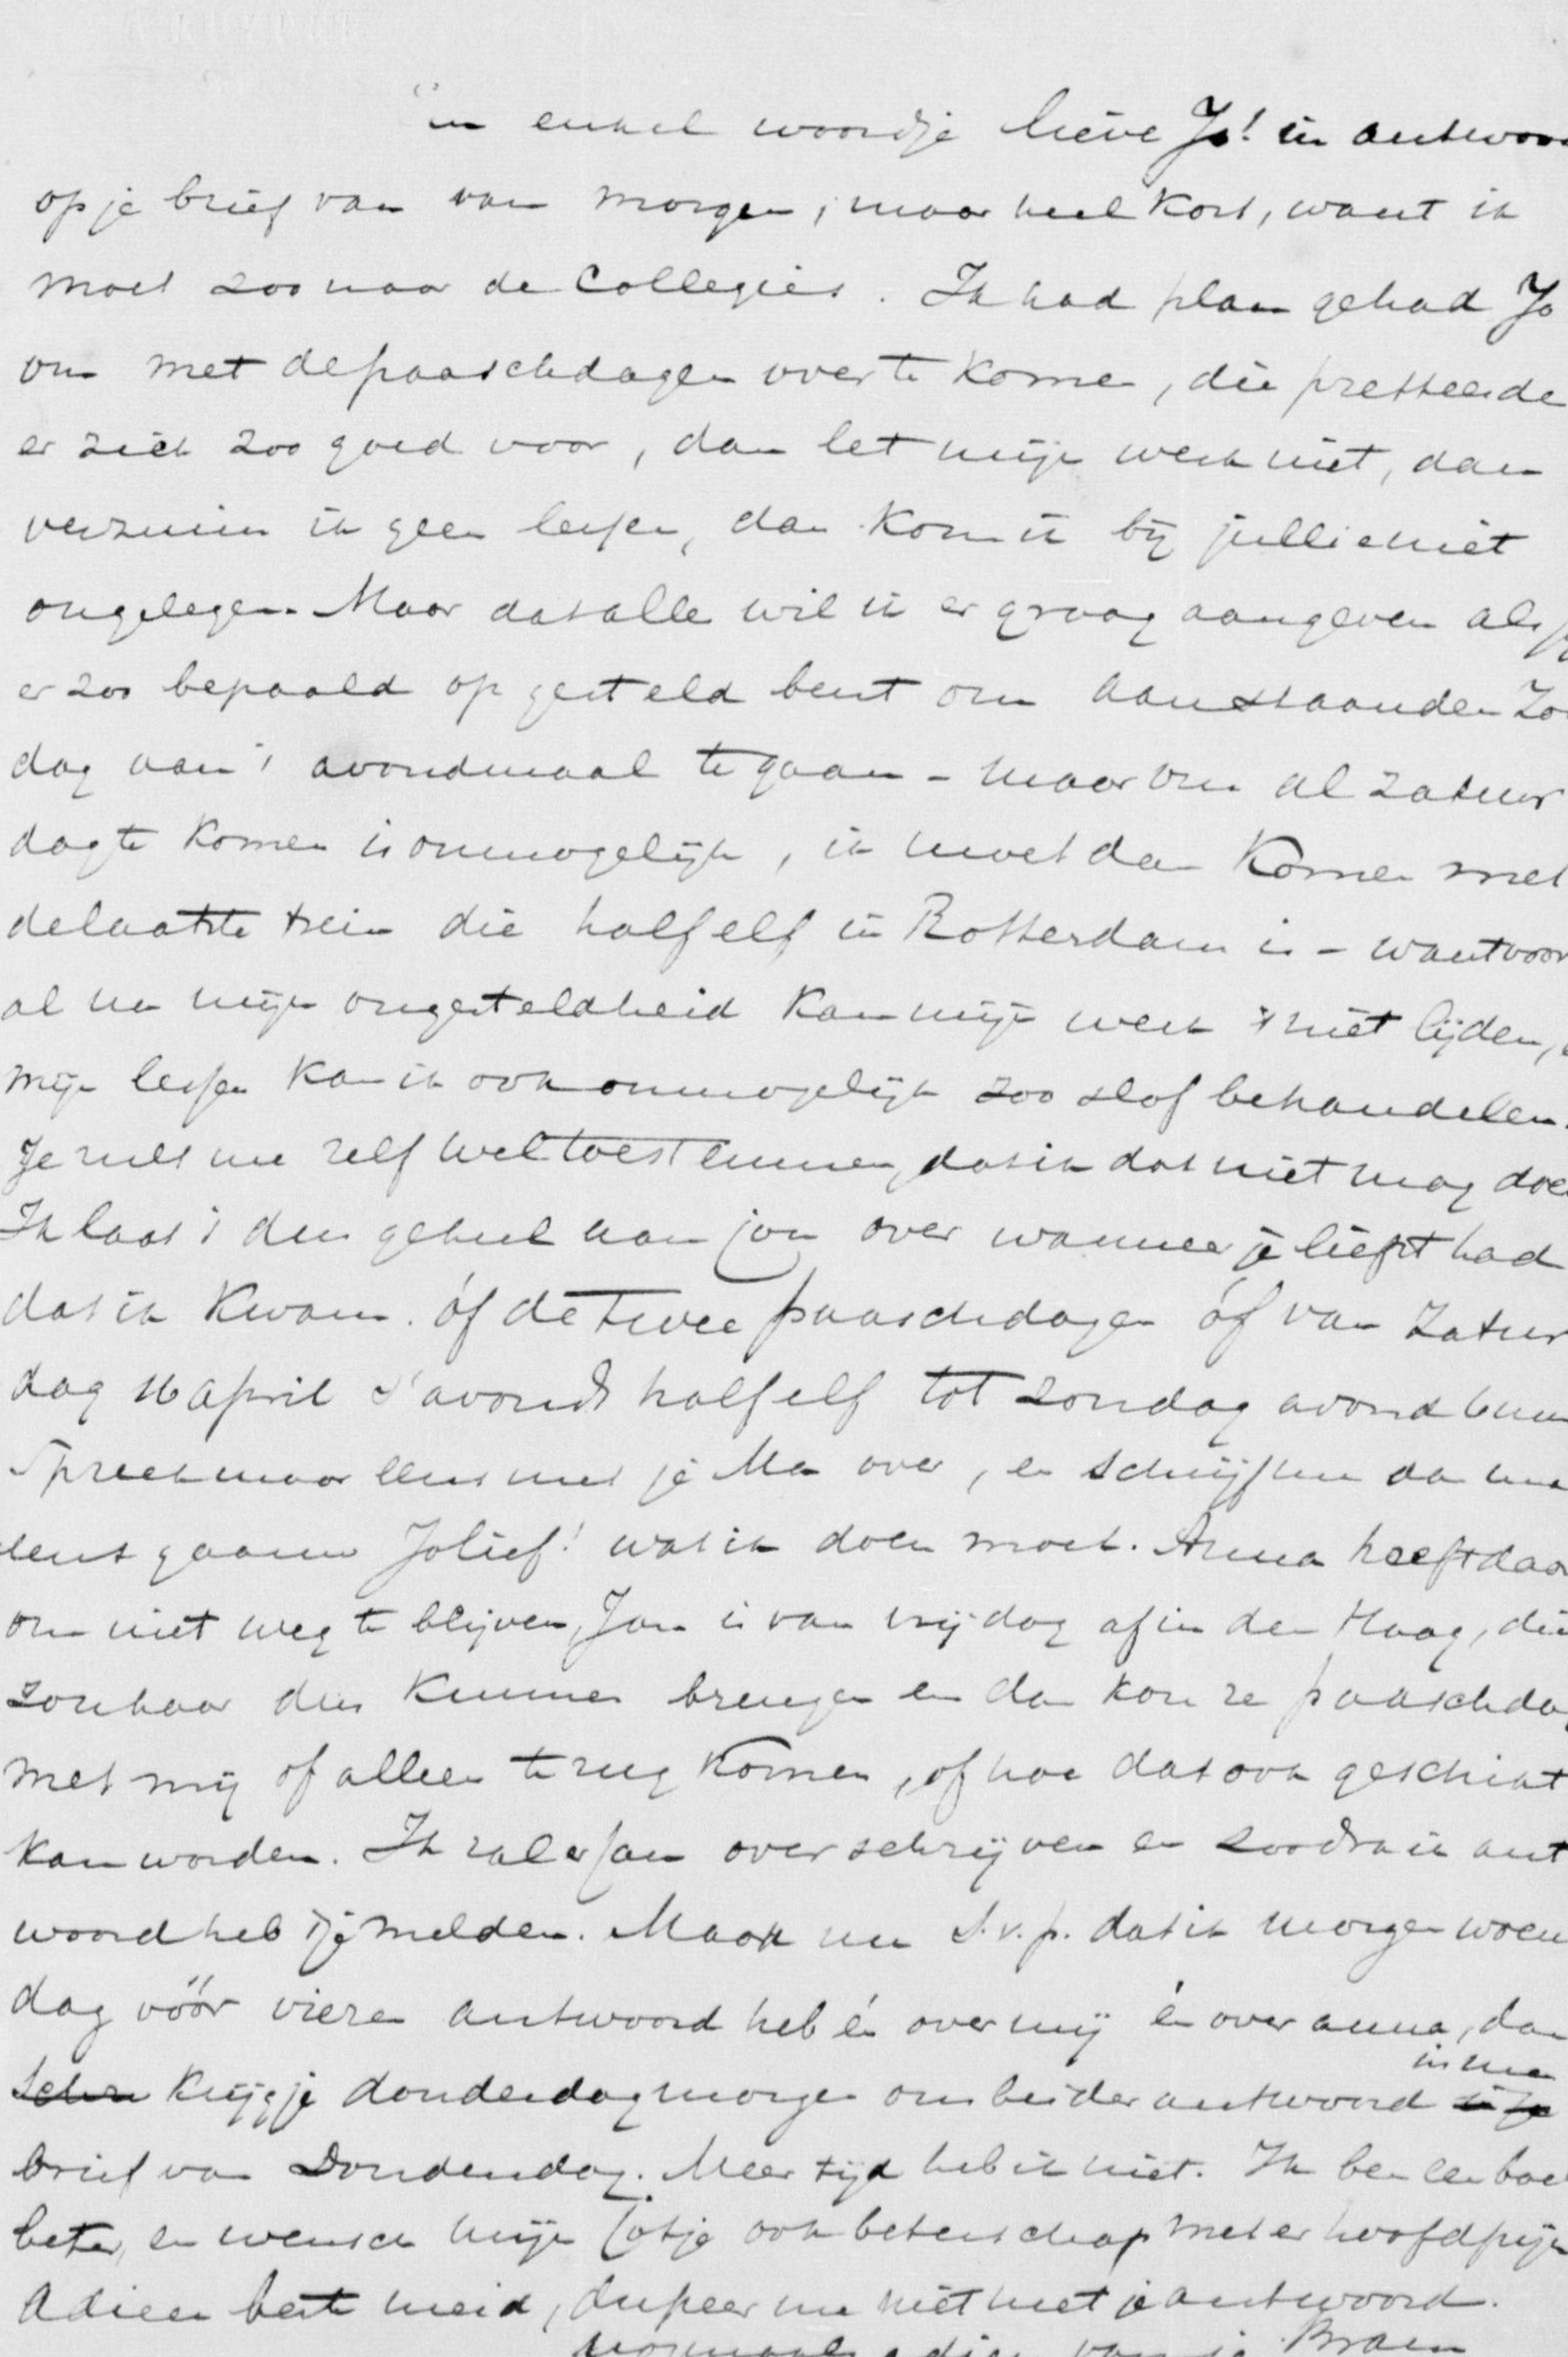 'n enkel woordje lieve Jo! in antwoor
op je brief van van morgen, maar heel kort, want ik
moet zoo naar de Collegies. Ik had plan gehad Jo
om met de paaschdagen over te komen, die presteerde
er zich zoo goed voor, dan let mijn werk niet, dan
verzuim ik geen lessen, dan kom ik bij jullie niet
ongelegen. Maar dat alle wil ik er graag aangeven als je
er zoo bepaald op gesteld bent om aanstaanden Zo
dag aan 't avondmaal te gaan - maar om al zatur
dag te komen is onmogelijk, ik moet dan komen met
de laatste trein die half elf in Rotterdam is - want voor
al na mijn ongesteldheid kan mijn werk 't niet lijden,
mijn lessen kan ik ook onmogelijk zoo slof behandelen.
Je zult me zelf wel toestemmen, dat ik dat niet mag doe
Ik laat 't dus geheel aan jou over wanneer je liefst had
dat ik kwam. óf de twee paaschdagen óf van Zatur
dag 16 april s'avonds half elf tot zondag avond 6 uur
Spreek maar eens met je Ma over, en schrijf me da
eens gaauw Jolief! wat ik doen moet. Anna heeft daar
om niet weg te blijven, Jan is van vrijdag af in den Haag, die
zou haar dus kunnen brengen en dan kon ze paaschda
met mij of alleen terug komen, of hoe dat ook geschikt
kan worden. Ik zal er Jan over schrijven en zoodra ik ant
woord heb 't je melden. Maak nu S.v.p. dat ik morgen woen
dag vóór vieren antwoord heb én over mij én over anna, dan
krijg je donderdagmorgen ons beider antwoord
in me
brief van Donderdag. Meer tijd heb ik niet. Ik ben een boe
beter, en wensch mijn Jotje ook beterschap met er hoofdpijn
Adieu beste meid, dupeer me niet met je antwoord.
nogmaals adieu van je Bram